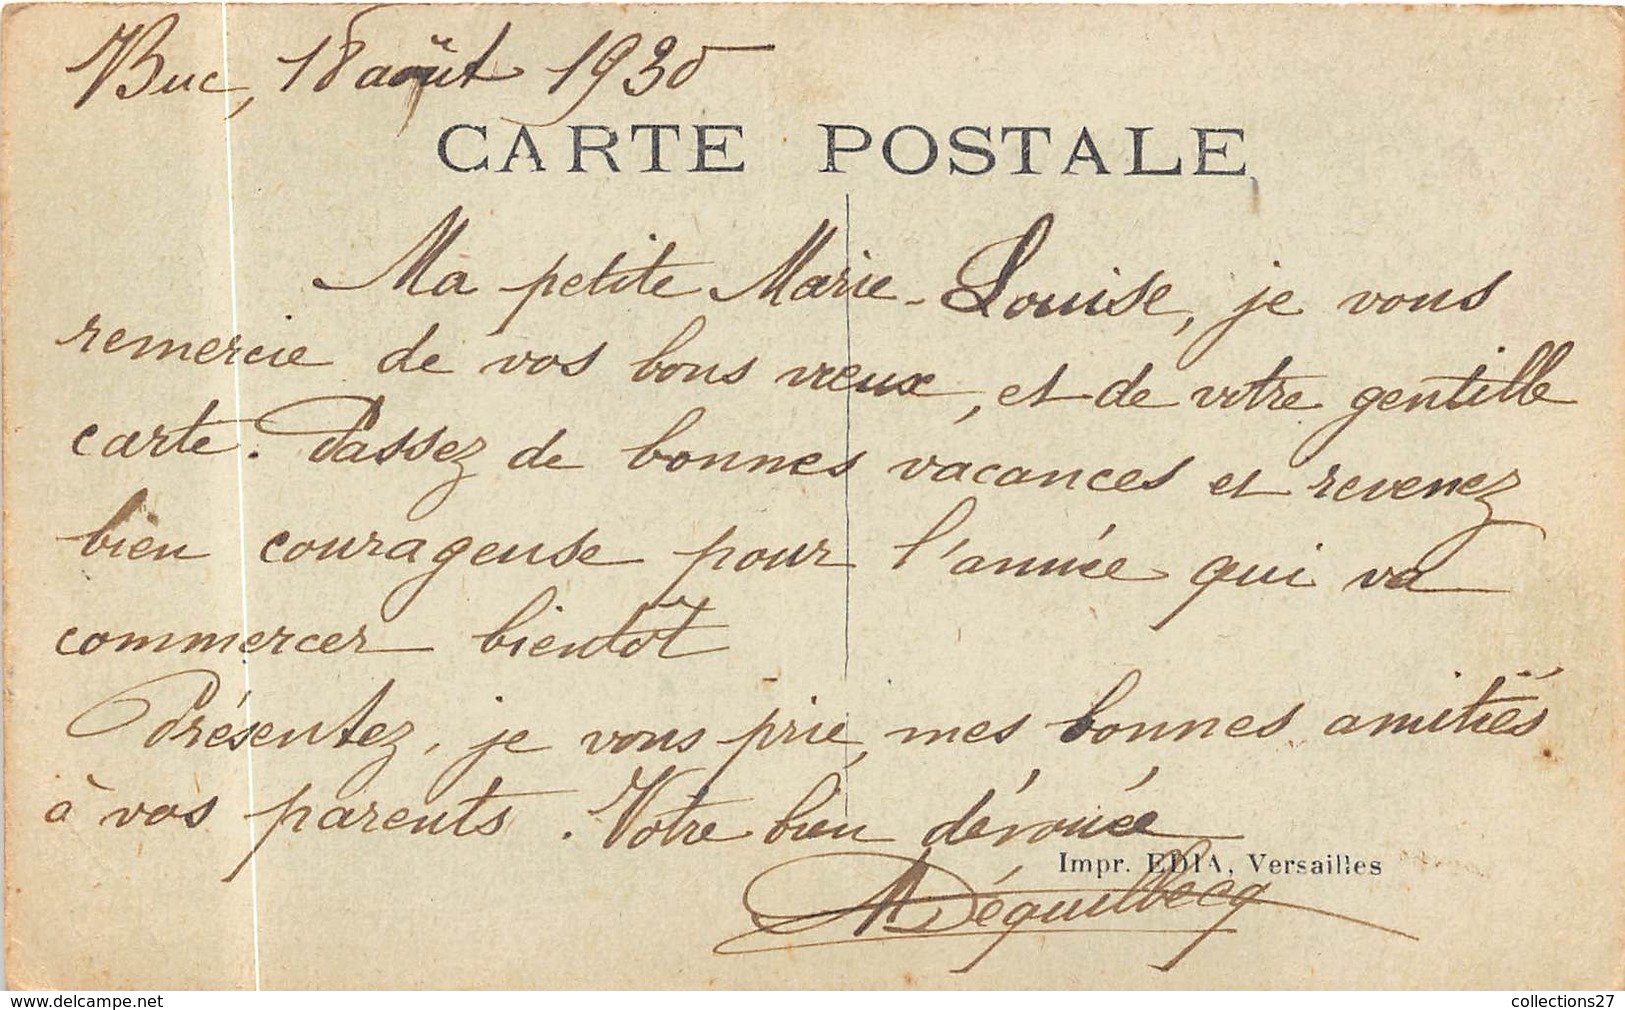 Buc, 18 août 1930
CARTE POSTALE
Ma petite Marie-Louise, je vous
remercie de vos bons vœux, et de votre gentille
carte. Passez de bonnes vacances et revenez
bien courageuse pour l'année qui va
commercer bientôt
Présentez, je vous prie, mes bonnes amitiés
à vos parents. Votre bien dévouée
Impr. EDIA, Versailles
www.delcampe.net
collections27